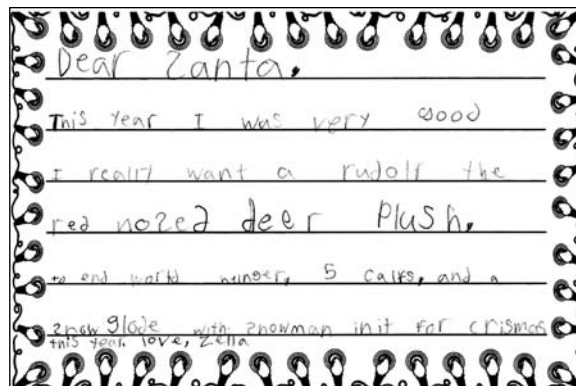 Dear Zanta,
This year I was very good
I really want a rudolf the
red nozed deer Plush,
to end world hunger, 5 calfs, and a
znow glode with znowman in it for crismas
this year. love, Zella